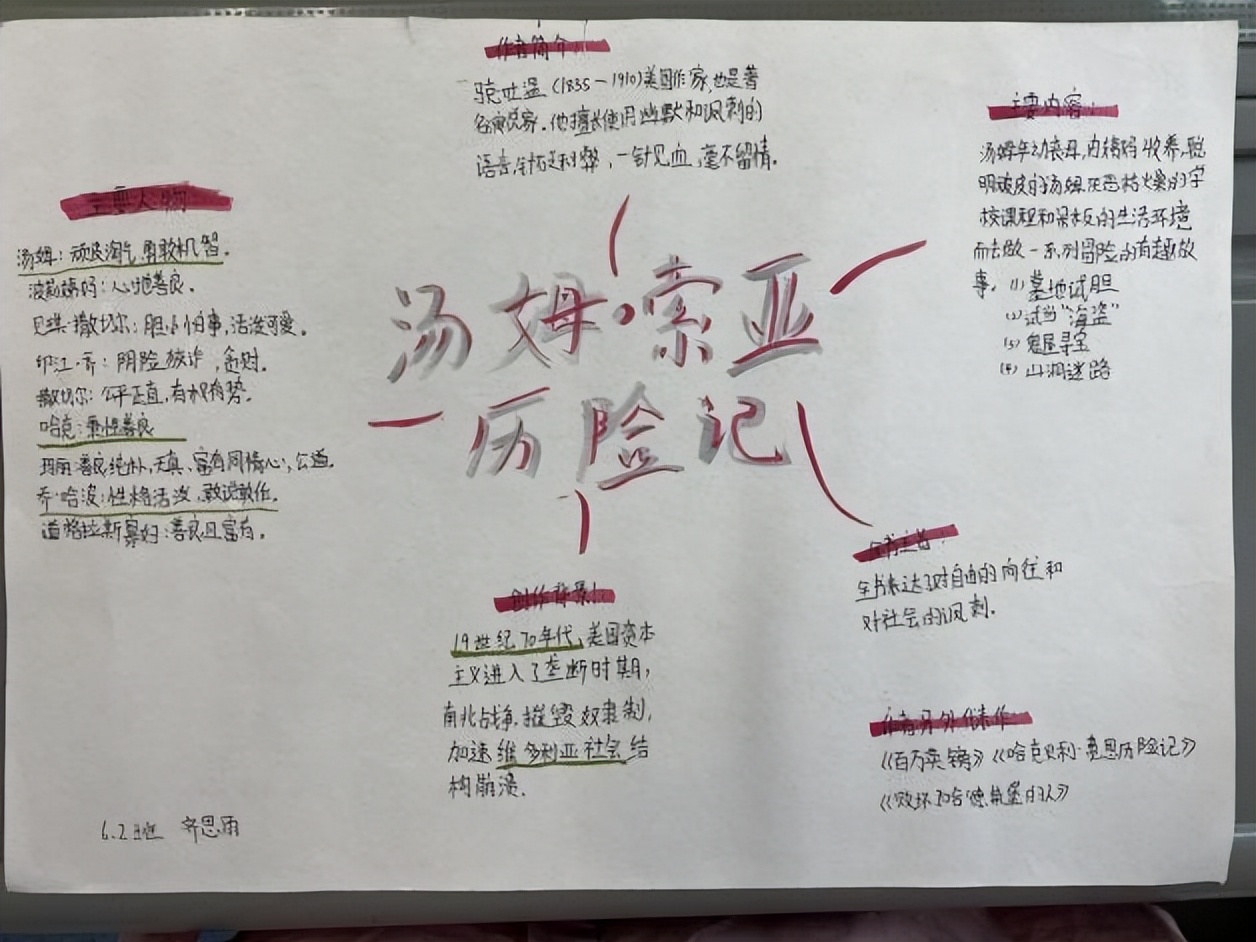 作者简介：
马克吐温（1835－1910）美国作家，也是著
名演说家。他擅长使用幽默和讽刺的
语言，针砭时弊，一针见血，毫不留情。
主要内容：
汤姆年幼丧母，由姨妈收养，聪
明顽皮的汤姆厌恶枯燥的学
校课程和呆板的生活环境
而去做一系列冒险的有趣故
事。(1) 墓地试胆
(2) 试当“海盗”
(3) 鬼屋寻宝
(4) 山洞迷路
主要人物
汤姆：顽皮淘气，勇敢机智。
波莉姨妈：心地善良。
贝琪·撒切尔：胆小怕事，活泼可爱。
印江·乔：阴险狡诈，贪财。
撒切尔：公平正直，有权有势。
哈克：秉性善良
玛丽：善良纯朴，天真、富有同情心，公道。
乔·哈波：性格活泼，敢说敢作。
道格拉斯寡妇：善良且富有。
汤姆·索亚
历险记
创作背景：
19世纪70年代，美国资本
主义进入了垄断时期，
南北战争，摧毁奴隶制，
加速维多利亚社会结
构崩溃。
全书主旨：
全书表达了对自由的向往和
对社会的讽刺。
作者另外佳作
《百万英镑》《哈克贝利·费恩历险记》
《败坏了哈德莱堡的人》
6.2班 齐思雨